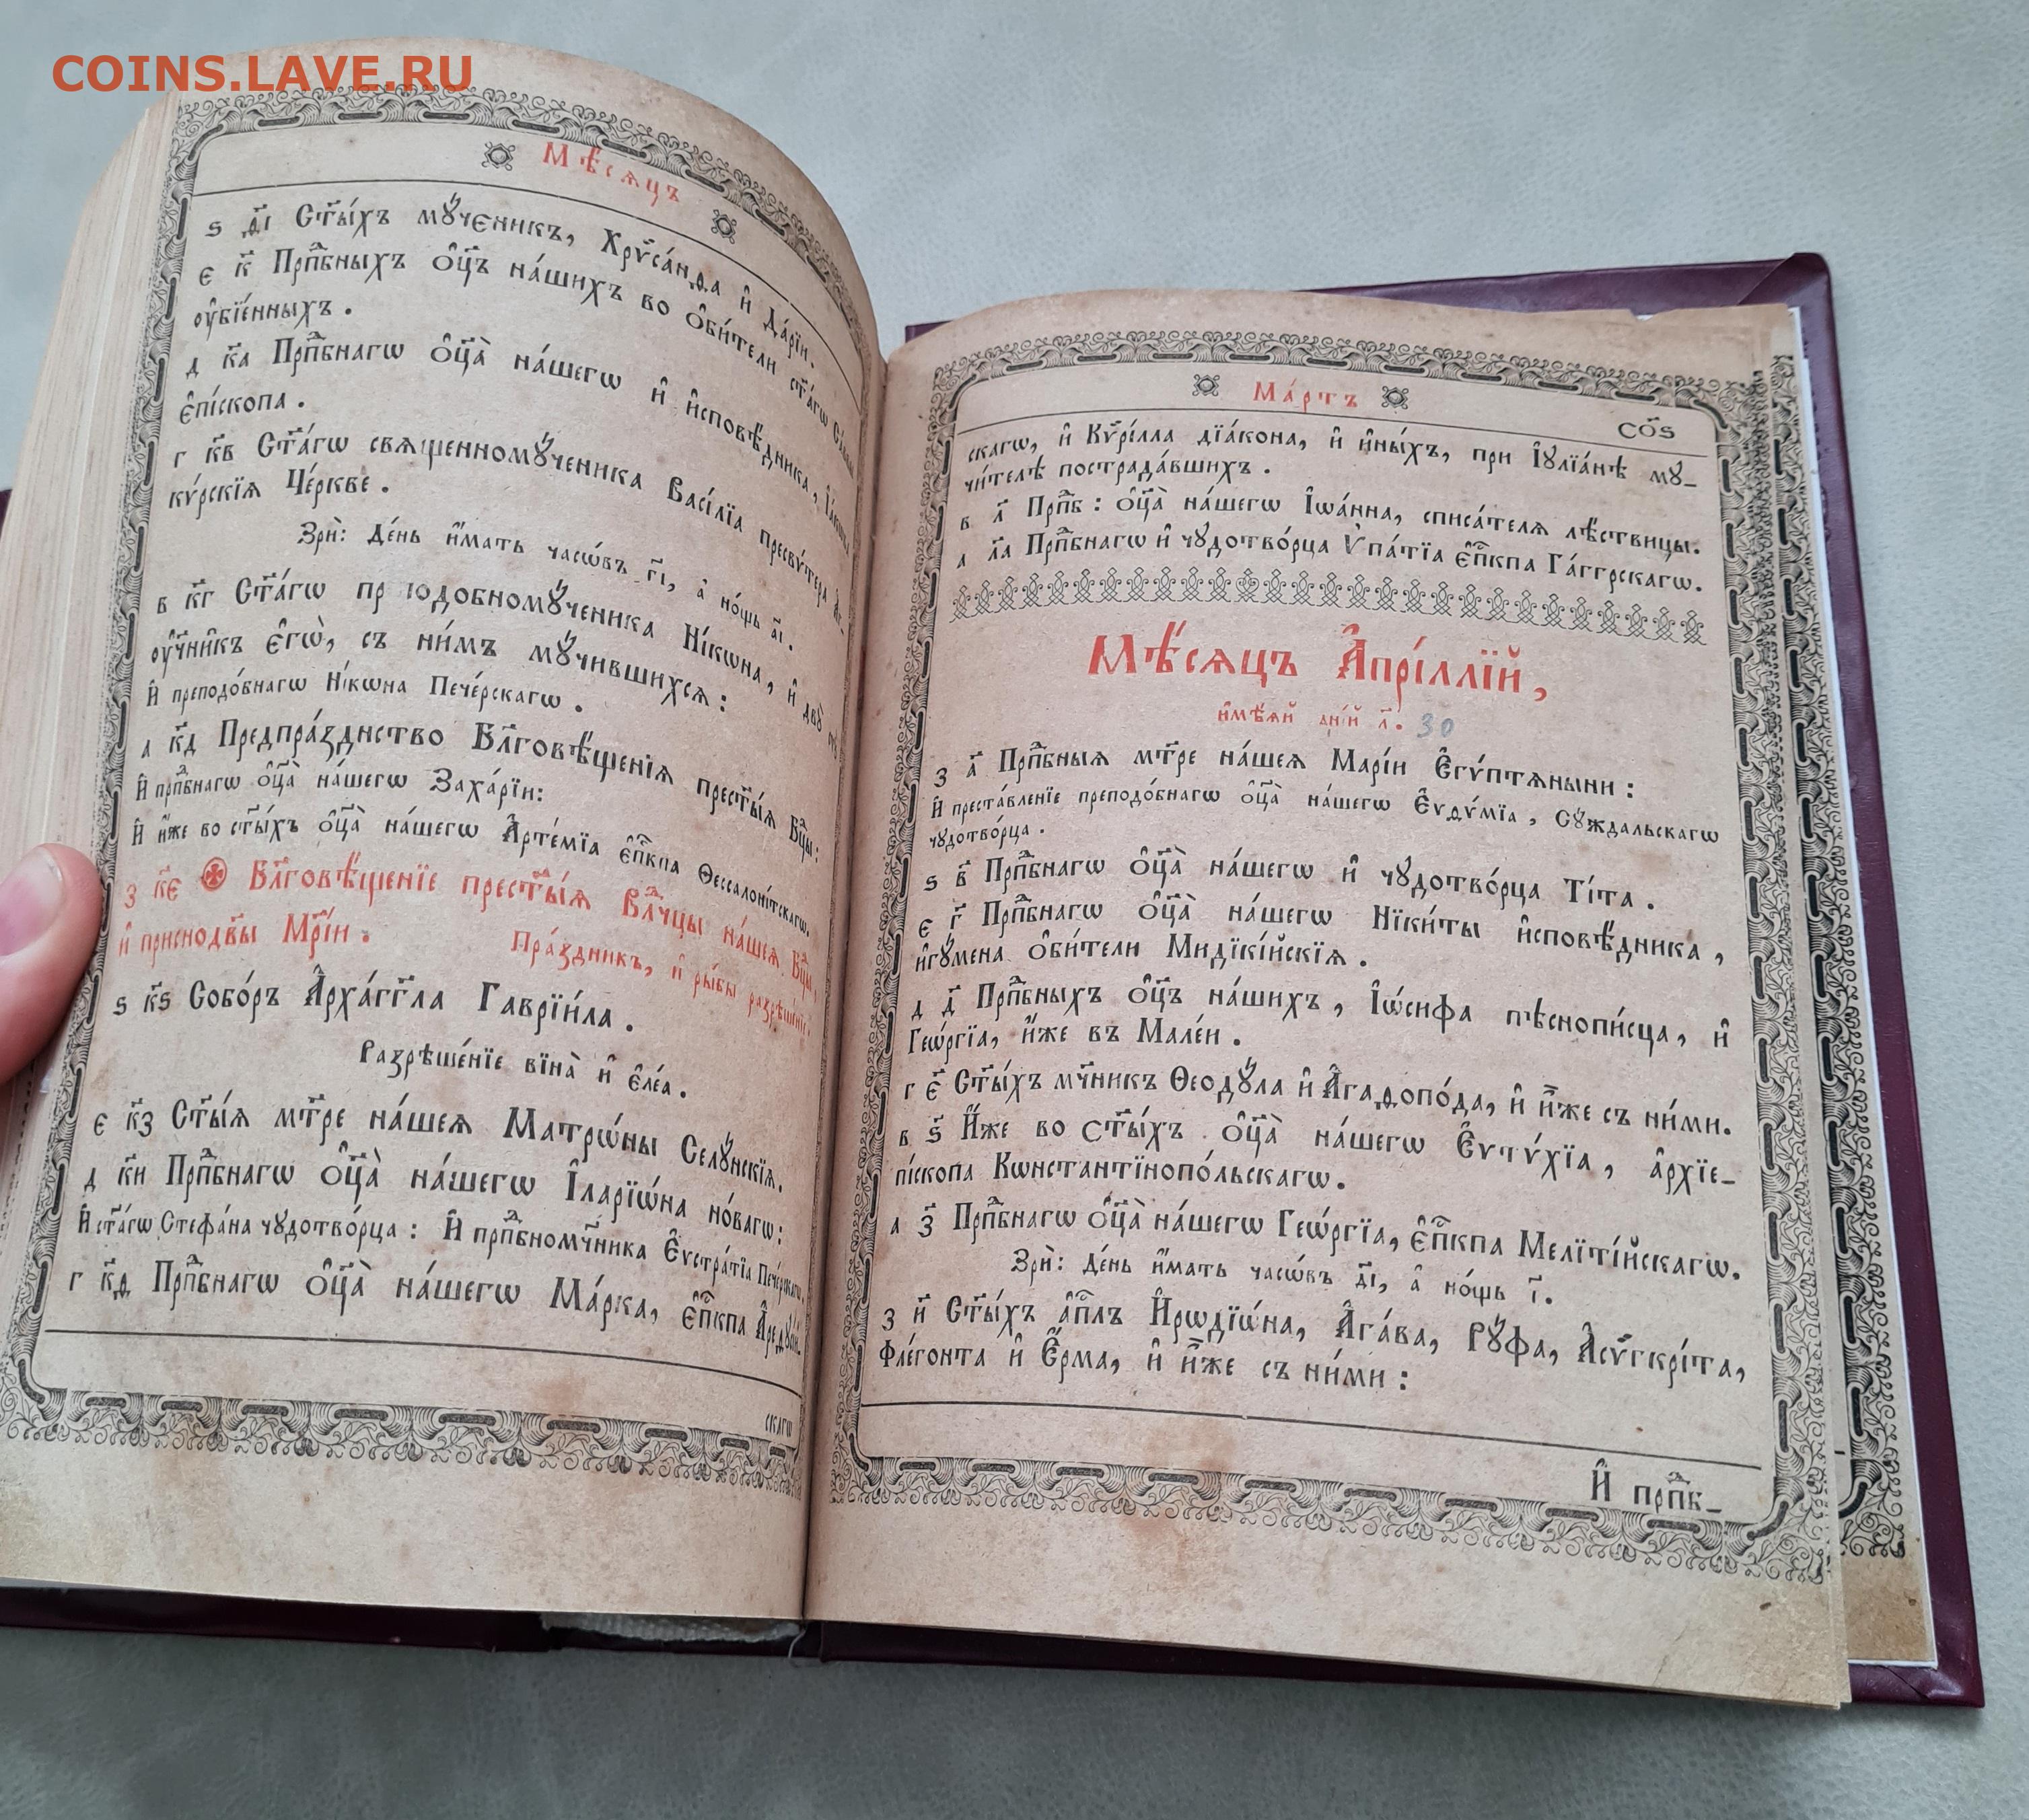 COINS.LAVE.RU
Мѣ́сяцъ
ѕ ѳ҃і Ст҃ы́хъ мꙋ́ченикъ, Хрѵса́нѳа и҆ Да́рїи.
є к҃ Прпⷣбныхъ ѻ҆ц҃ъ на́шихъ во ѻ҆би́тели ст҃а́гѡ Са́ввы
ᲂу҆бїе́нныхъ.
д к҃а Прпⷣбнагѡ ѻ҆ц҃а̀ на́шегѡ и҆ и҆сповѣ́дника, І҆а́кѡва
є҆пі́скопа.
г к҃в Ст҃а́гѡ свяще́нномꙋ́ченика Васі́лїа пресвѵ́тера А҆г-
кѵ́рскїя Це́ркве.
Зрѝ: Де́нь и҆́мать часѡ́въ г҃і, а҆ но́щь а҃і.
в к҃г Ст҃а́гѡ преподобномꙋ́ченика Ні́кѡна, и҆ двꙋ̀
ᲂу҆чн҃и́къ є҆гѡ̀, съ ни́мъ мꙋ́чившихся:
И҆ преподо́бнагѡ Ні́кѡна Пече́рскагѡ.
а к҃д Предпра́зднство Бл҃говѣ́щенїя прест҃ы́я Бц҃ы:
И҆ прпⷣбнагѡ ѻ҆ц҃а̀ на́шегѡ Заха́рїи:
И҆ и҆́же во ст҃ы́хъ ѻ҆ц҃а̀ на́шегѡ А҆рте́мїа є҆пⷭ҇кпа Ѳессалоні́тскагѡ.
з к҃є Бл҃говѣ́щенїе прест҃ы́я Влⷣчцы на́шея Бц҃ы,
и҆ приснодв҃ы Мр҃і́и. Пра́здникъ, и҆ ры́бы разрѣше́нїе:
ѕ к҃ѕ Собо́ръ А҆рха́гг҃ла Гаврїи́ла.
Разрѣше́нїе вїна̀ и҆ є҆ле́а.
є к҃з Ст҃ы́я мт҃ре на́шея Матрѡ́ны Селꙋ́нскїя.
д к҃и Прпⷣбнагѡ ѻ҆ц҃а̀ на́шегѡ І҆ларїѡ́на но́вагѡ:
И҆ ст҃а́гѡ Стефа́на чꙋдотво́рца: И҆ прпⷣбномч҃ника Є҆ѵстра́тїа Пече́рскагѡ.
г к҃ѳ Прпⷣбнагѡ ѻ҆ц҃а̀ на́шегѡ Ма́рка, є҆пⷭ҇кпа А҆редꙋ́сїй-
скагѡ
Ма́ртъ
со҃ѕ
скагѡ, и҆ Кѵрі́лла дїа́кона, и҆ и҆ны́хъ, при І҆ꙋлїа́нѣ мꙋ-
чи́телѣ пострада́вшихъ.
в л҃ Прпⷣб: ѻ҆ц҃а̀ на́шегѡ І҆ѡа́нна, списа́теля лѣ́ствицы.
а л҃а Прпⷣбнагѡ и҆ чꙋдотво́рца Ѵ҆па́тїа є҆пⷭ҇кпа Га́ггрскагѡ.
Мѣ́сяцъ А҆прі́ллїй,
и҆мѣ́яй дні́й л҃. 30
з а҃ Прпⷣбныя мт҃ре на́шея Марі́и Є҆гѵ́птяныни:
И҆ преста́вленїе преподо́бнагѡ ѻ҆ц҃а̀ на́шегѡ Є҆ѵѳѵ́мїа, Сꙋ́ждальскагѡ
чꙋдотво́рца.
ѕ в҃ Прпⷣбнагѡ ѻ҆ц҃а̀ на́шегѡ и҆ чꙋдотво́рца Ті́та.
є г҃ Прпⷣбнагѡ ѻ҆ц҃а̀ на́шегѡ Нїки́ты и҆сповѣ́дника,
и҆гꙋ́мена ѻ҆би́тели Мидїкі́йскїя.
д д҃ Прпⷣбныхъ ѻ҆ц҃ъ на́шихъ, І҆ѡ́сифа пѣснопи́сца, и҆
Геѡ́ргїа, и҆́же въ Мале́и.
г є҃ Ст҃ы́хъ мч҃никъ Ѳеодꙋ́ла и҆ А҆гаѳопо́да, и҆ и҆̀же съ ни́ми.
в ѕ҃ И҆́же во ст҃ы́хъ ѻ҆ц҃а̀ на́шегѡ Є҆ѵтѵ́хїа, а҆рхїе-
пі́скопа Кѡнстантїнопо́льскагѡ.
а з҃ Прпⷣбнагѡ ѻ҆ц҃а̀ на́шегѡ Геѡ́ргїа, є҆пⷭ҇кпа Мелїті́йскагѡ.
Зрѝ: Де́нь и҆́мать часѡ́въ д҃і, а҆ но́щь і҃.
з и҃ Ст҃ы́хъ а҆пⷭ҇лъ И҆рѡдїѡ́на, А҆га́ва, Рꙋ́фа, А҆сѵгкрі́та,
Фле́гонта и҆ Є҆́рма, и҆ и҆̀же съ ни́ми:
И҆ прпⷣб-